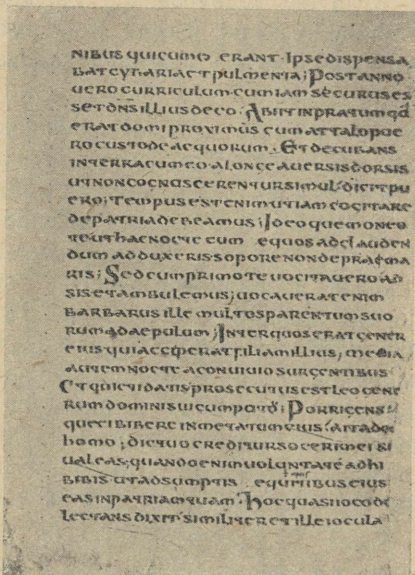 NIBUS QUICUMEO ERANT· IPSEDISPENSA
BATCYBARIAETPULMENTA; POSTANNO
UEROCURRICULUM·CUMIAMSECURUSES
SETDNSILLIUSDEEO· ABIITINPRATUMQD
ERATDOMIPROXIMUSCUMATTALOPUE
ROCUSTODEAEQUORUM· ETDECUBANS
INTERRACUMEOALONGEAUERSISDORSIS
UTNONCOGNOSCERENTURSIMUL'DICITPU
ERO; TEMPUSESTENIMUTIAMCOGITARE
DEPATRIADEBEAMUS; IDEOQUEMONEO
TEUTHACNOCTECUM EQUOSADCLAUDEN
DUMADDUXERISSOPORENONDEPRAEMA
RIS; SEDCUMPRIMOTEUOCITAUEROAD
SISETAMBULEMUS; UOCAUERATENIM
BARBARUSILLEMULTOSPARENTUMSUO
RUMADAEPULUM; INTERQUOSERATGENER
EIUSQUIACCIPERATFILIAMILLIUS; MEDIA
AUTEMNOCTEACONUIUIOSURGENTIBUS
ETQUIETIDATIS'PROSECUTUSESTLEOGENE
RUMDOMINISUICUMPOTU; PORRIGENS
QUEEIBIBEREINMETATUMEIUS' AITADEU
HOMO; DICTUOCREDITURSOCERIMEISI
UALEAS, QUANDOENIMUOLUNTATEADHI
BIBISUTADSUMPTIS EQUITIBUSEIUS
EASINPATRIAMTUAM· HOCQUASIIOCODE
LECTANSDIXIT'SIMILITERETILLEIOCULA